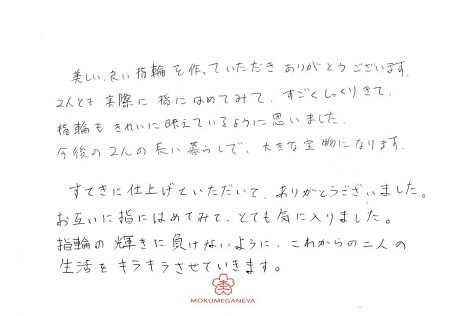 美しい、良い指輪を作っていただきありがとうございます。
2人とも実際に指にはめてみて、すごくしっくりきて、
指輪もきれいに映えているように思いました。
今後の2人の長い暮らしで、大きな宝物になります。
すてきに仕上げていただいて、ありがとうございました。
お互いに指にはめてみて、とても気に入りました。
指輪の輝きに負けないように、これからの二人の
生活をキラキラさせていきます。
MOKUMEGANEYA